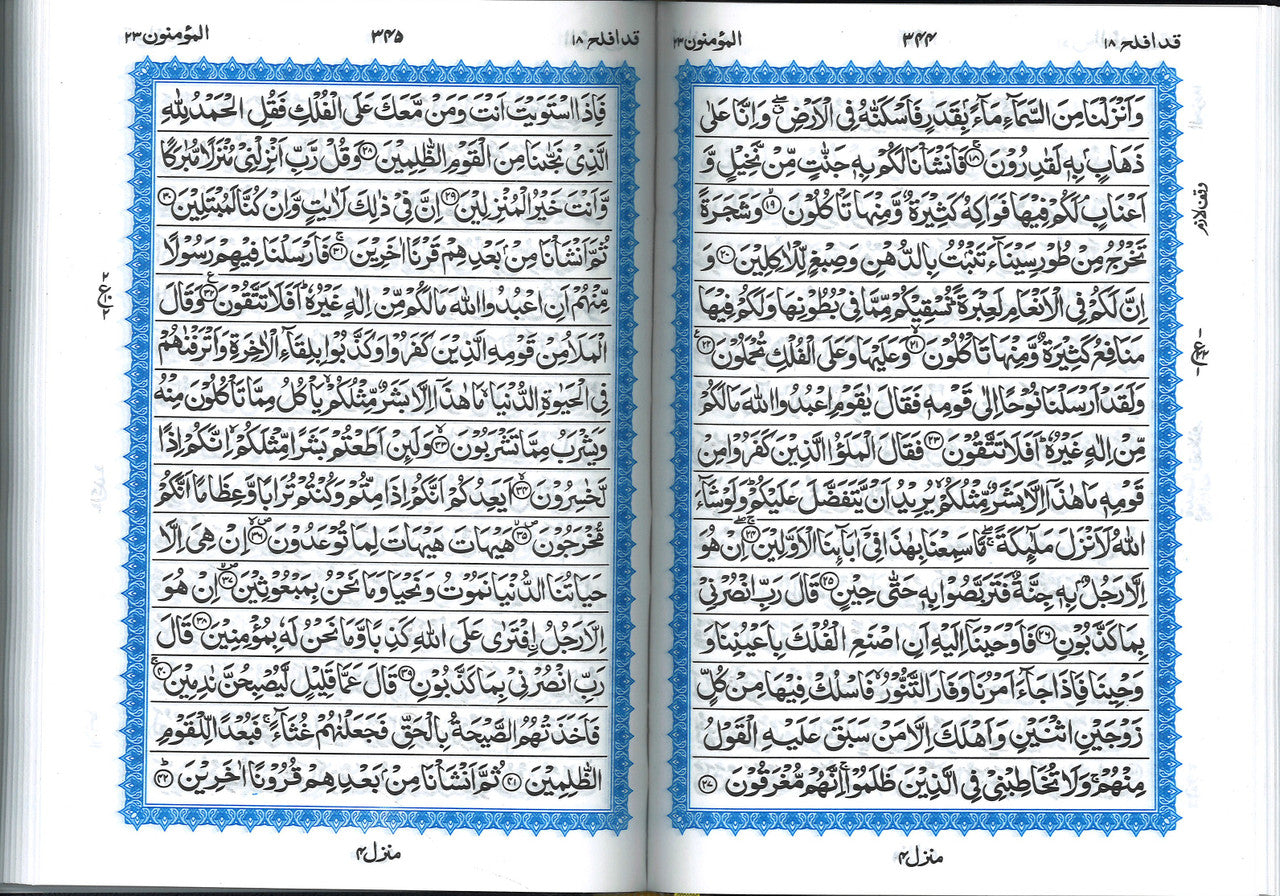 قد افلح ١٨
٣٤٤
المؤمنون ٢٣
وَاَنْزَلْنَا مِنَ السَّمَآءِ مَآءًۢ بِقَدَرٍ فَاَسْكَنّٰهُ فِی الْاَرْضِ ۖۗ وَاِنَّا عَلٰی
ذَهَابٍۭ بِهٖ لَقٰدِرُوْنَ ﴿۱۸﴾ فَاَنْشَاْنَا لَكُمْ بِهٖ جَنّٰتٍ مِّنْ نَّخِیْلٍ وَّ
اَعْنَابٍ ۘ لَكُمْ فِیْهَا فَوَاكِهُ كَثِیْرَةٌ وَّمِنْهَا تَاْكُلُوْنَ ﴿۱۹﴾ وَشَجَرَةً
تَخْرُجُ مِنْ طُوْرِ سَیْنَآءَ تَنْۢبُتُ بِالدُّهْنِ وَصِبْغٍ لِّلْاٰكِلِیْنَ ﴿۲۰﴾ وَ
اِنَّ لَكُمْ فِی الْاَنْعَامِ لَعِبْرَةً ؕ نُسْقِیْكُمْ مِّمَّا فِیْ بُطُوْنِهَا وَلَكُمْ فِیْهَا
مَنَافِعُ كَثِیْرَةٌ وَّمِنْهَا تَاْكُلُوْنَ ﴿۲۱﴾ وَعَلَیْهَا وَعَلَی الْفُلْكِ تُحْمَلُوْنَ ﴿۲۲﴾
وَلَقَدْ اَرْسَلْنَا نُوْحًا اِلٰی قَوْمِهٖ فَقَالَ یٰقَوْمِ اعْبُدُوا اللّٰهَ مَا لَكُمْ
مِّنْ اِلٰهٍ غَیْرُهٗ ؕ اَفَلَا تَتَّقُوْنَ ﴿۲۳﴾ فَقَالَ الْمَلَؤُا الَّذِیْنَ كَفَرُوْا مِنْ
قَوْمِهٖ مَا هٰذَاۤ اِلَّا بَشَرٌ مِّثْلُكُمْ ۙ یُرِیْدُ اَنْ یَّتَفَضَّلَ عَلَیْكُمْ ؕ وَلَوْ شَآءَ
اللّٰهُ لَاَنْزَلَ مَلٰٓئِكَةً ۖۚ مَّا سَمِعْنَا بِهٰذَا فِیْۤ اٰبَآئِنَا الْاَوَّلِیْنَ ﴿۲۴﴾ اِنْ هُوَ
اِلَّا رَجُلٌۢ بِهٖ جِنَّةٌ فَتَرَبَّصُوْا بِهٖ حَتّٰی حِیْنٍ ﴿۲۵﴾ قَالَ رَبِّ انْصُرْنِیْ
بِمَا كَذَّبُوْنِ ﴿۲۶﴾ فَاَوْحَیْنَاۤ اِلَیْهِ اَنِ اصْنَعِ الْفُلْكَ بِاَعْیُنِنَا وَ
وَحْیِنَا فَاِذَا جَآءَ اَمْرُنَا وَفَارَ التَّنُّوْرُ ۙ فَاسْلُكْ فِیْهَا مِنْ كُلٍّ
زَوْجَیْنِ اثْنَیْنِ وَاَهْلَكَ اِلَّا مَنْ سَبَقَ عَلَیْهِ الْقَوْلُ
مِنْهُمْ ۚ وَلَا تُخَاطِبْنِیْ فِی الَّذِیْنَ ظَلَمُوْا ۚ اِنَّهُمْ مُّغْرَقُوْنَ ﴿۲۷﴾
وقف لازم
منزل ٤
قد افلح ١٨
٣٤٥
المؤمنون ٢٣
فَاِذَا اسْتَوَیْتَ اَنْتَ وَمَنْ مَّعَكَ عَلَی الْفُلْكِ فَقُلِ الْحَمْدُ لِلّٰهِ
الَّذِیْ نَجّٰىنَا مِنَ الْقَوْمِ الظّٰلِمِیْنَ ﴿۲۸﴾ وَقُلْ رَّبِّ اَنْزِلْنِیْ مُنْزَلًا مُّبٰرَكًا
وَّاَنْتَ خَیْرُ الْمُنْزِلِیْنَ ﴿۲۹﴾ اِنَّ فِیْ ذٰلِكَ لَاٰیٰتٍ وَّاِنْ كُنَّا لَمُبْتَلِیْنَ ﴿۳۰﴾
ثُمَّ اَنْشَاْنَا مِنْۢ بَعْدِهِمْ قَرْنًا اٰخَرِیْنَ ﴿۳۱﴾ فَاَرْسَلْنَا فِیْهِمْ رَسُوْلًا
مِّنْهُمْ اَنِ اعْبُدُوا اللّٰهَ مَا لَكُمْ مِّنْ اِلٰهٍ غَیْرُهٗ ؕ اَفَلَا تَتَّقُوْنَ ﴿۳۲﴾ وَقَالَ
الْمَلَاُ مِنْ قَوْمِهِ الَّذِیْنَ كَفَرُوْا وَكَذَّبُوْا بِلِقَآءِ الْاٰخِرَةِ وَاَتْرَفْنٰهُمْ
فِی الْحَیٰوةِ الدُّنْیَا ۙ مَا هٰذَاۤ اِلَّا بَشَرٌ مِّثْلُكُمْ ۙ یَاْكُلُ مِمَّا تَاْكُلُوْنَ مِنْهُ
وَیَشْرَبُ مِمَّا تَشْرَبُوْنَ ﴿۳۳﴾ وَلَئِنْ اَطَعْتُمْ بَشَرًا مِّثْلَكُمْ ۙ اِنَّكُمْ اِذًا
لَّخٰسِرُوْنَ ﴿۳۴﴾ اَیَعِدُكُمْ اَنَّكُمْ اِذَا مِتُّمْ وَكُنْتُمْ تُرَابًا وَّعِظَامًا اَنَّكُمْ
مُّخْرَجُوْنَ ﴿۳۵﴾ هَیْهَاتَ هَیْهَاتَ لِمَا تُوْعَدُوْنَ ﴿۳۶﴾ اِنْ هِیَ اِلَّا
حَیَاتُنَا الدُّنْیَا نَمُوْتُ وَنَحْیَا وَمَا نَحْنُ بِمَبْعُوْثِیْنَ ﴿۳۷﴾ اِنْ هُوَ
اِلَّا رَجُلُ اِفْتَرٰی عَلَی اللّٰهِ كَذِبًا وَّمَا نَحْنُ لَهٗ بِمُؤْمِنِیْنَ ﴿۳۸﴾ قَالَ
رَبِّ انْصُرْنِیْ بِمَا كَذَّبُوْنِ ﴿۳۹﴾ قَالَ عَمَّا قَلِیْلٍ لَّیُصْبِحُنَّ نٰدِمِیْنَ ﴿۴۰﴾
فَاَخَذَتْهُمُ الصَّیْحَةُ بِالْحَقِّ فَجَعَلْنٰهُمْ غُثَآءً ۚ فَبُعْدًا لِّلْقَوْمِ
الظّٰلِمِیْنَ ﴿۴۱﴾ ثُمَّ اَنْشَاْنَا مِنْۢ بَعْدِهِمْ قُرُوْنًا اٰخَرِیْنَ ﴿۴۲﴾
منزل ٤